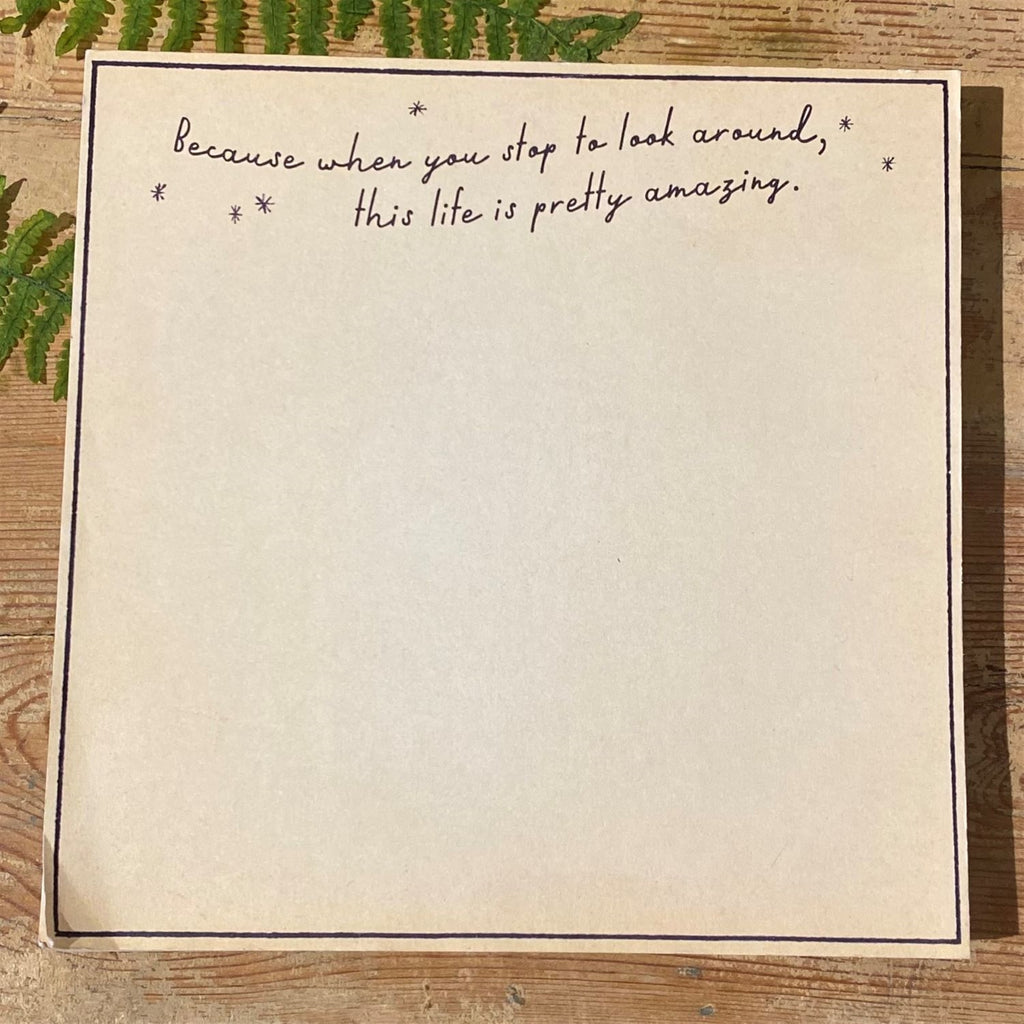 Because when you stop to look around,
this life is pretty amazing.